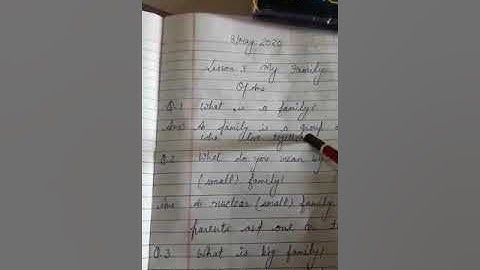 May, 2020
Lesson 3 My Family
Q/Ans
Q.1 What is a family?
Ans A family is a group
who live together
Q.2 What do you mean by
(small) family?
Ans A nuclear (small) family
parents and one or
Q.3. What is big family?